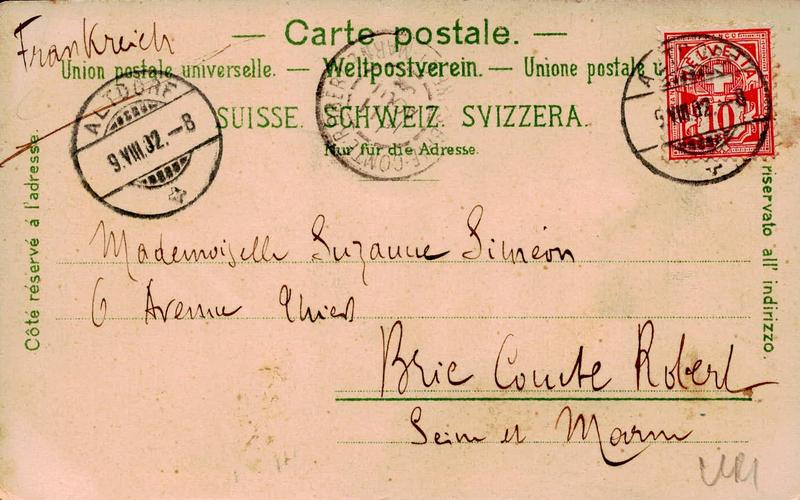 Frankreich
— Carte postale. —
Union postale universelle. — Weltpostverein. — Unione postale u
SUISSE. SCHWEIZ. SVIZZERA.
Nur für die Adresse.
ALTDORF
9.VIII.02.–8
HELVETIA
10
9.VIII.02.–8
Côté réservé à l'adresse.
riservato all' indirizzo.
Mademoiselle Suzanne Siméon
6 Avenue Thiers
Brie Comte Robert
Seine et Marne